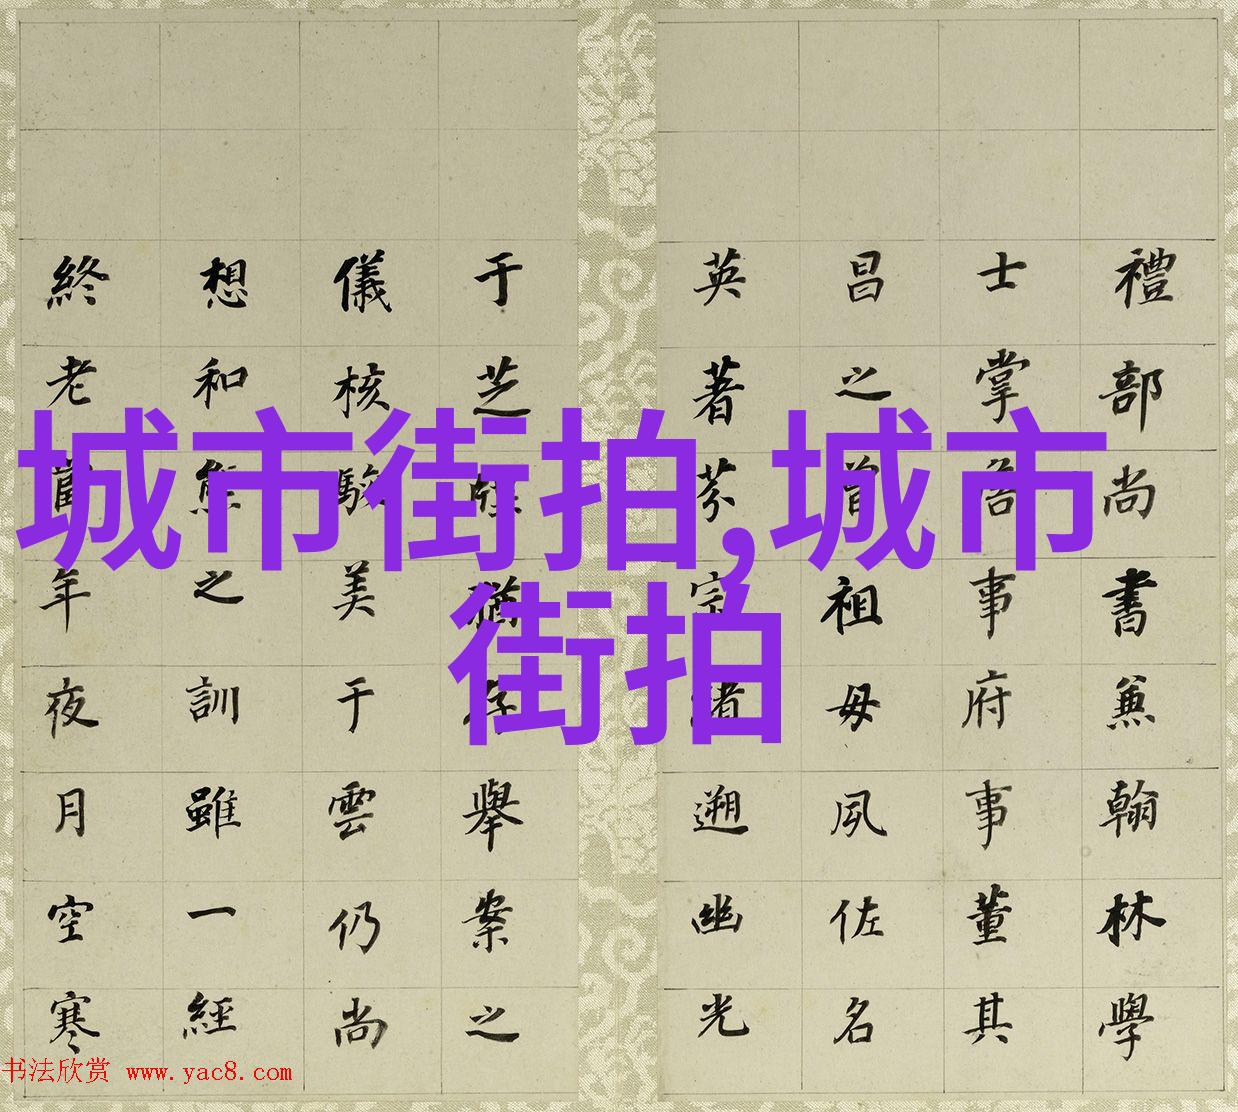 城市街拍,城市
街拍
禮部尚書兼翰林學
士掌詹事府事董其
昌之曾祖母夙佐名
英著芬緒遡幽光
于芝猶存舉案之
儀核美于雲仍尚
想和熊之訓雖一經
終老年夜月空寒
书法欣赏 www.yac8.com